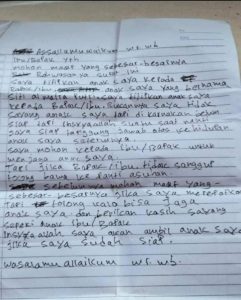 Assallamualaikum wr. wb
Ibu/Bapak Yth
mohon maaf yang sebesar-besarnya
Bahwasanya surat ini
saya titipkan anak saya kepada
Bapak/Ibu anak saya yang bernama
Siti saya titipkan anak saya
kepada Bapak/Ibu bukannya saya tidak
sayang anak saya tapi di karnakan belum
siap tapi insyaallah suatu saat nanti
saya siap tanggung jawab atas kehidupan
anak saya seterusnya
saya mohon kepada Ibu/Bapak untuk
menjaga anak saya
Tapi jika Bapak/Ibu tidak sanggup
tolong bawa ke Panti asuhan
sebelumnya mohon maaf yang-
sebesar-besarnya jika saya merepotkan
tapi tolong kalo bisa jaga
anak saya dan berikan kasih sayang
seperti anak Ibu/Bapak
Insyaallah saya akan ambil anak saya
jika saya sudah siap
wassalamuallaikum wr. wb.